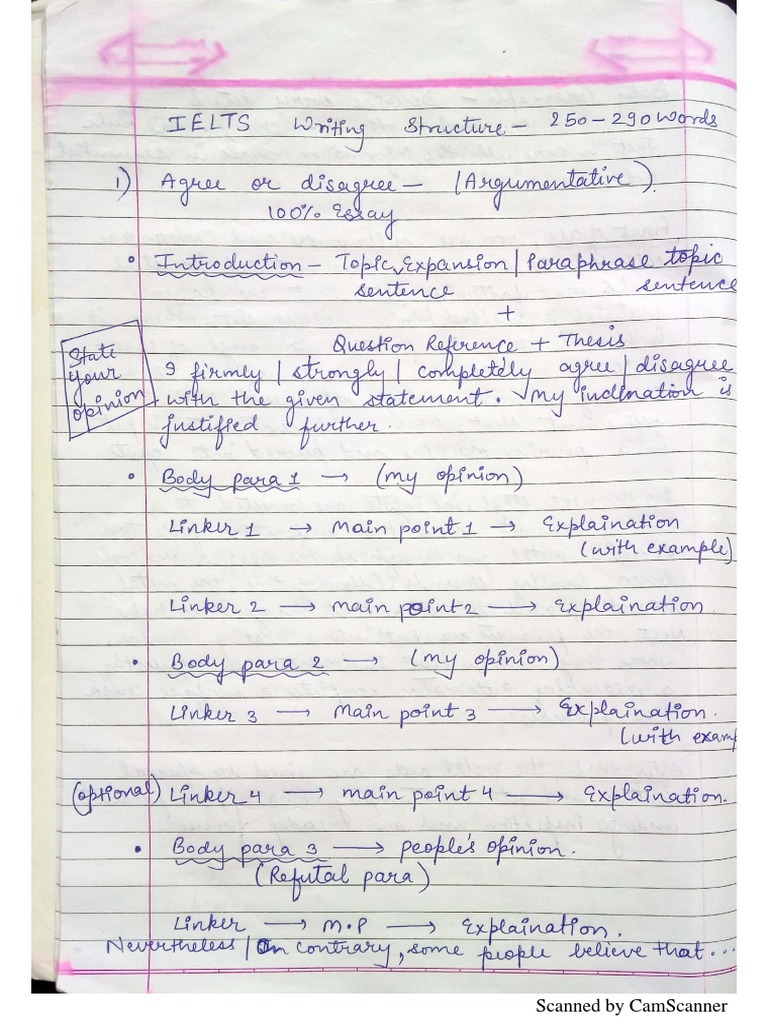 IELTS Writing Structure - 250-290 words
1) Agree or disagree - (Argumentative)
100% Essay
• Introduction - Topic Expansion / Paraphrase topic
sentence sentence
+
Question Reference + Thesis
State your opinion
I firmly / strongly / completely agree / disagree
with the given statement. My inclination is
justified further.
• Body para 1 → (my opinion)
Linker 1 → main point 1 → Explaination
(with example)
Linker 2 → main point 2 → Explaination
• Body para 2 → (my opinion)
Linker 3 → Main point 3 → Explaination.
(with examp
(optional) Linker 4 → main point 4 → Explaination.
• Body para 3 → people's opinion.
(Refutal para)
Linker → M.P → Explaination.
Nevertheless / On contrary, some people believe that...
Scanned by CamScanner